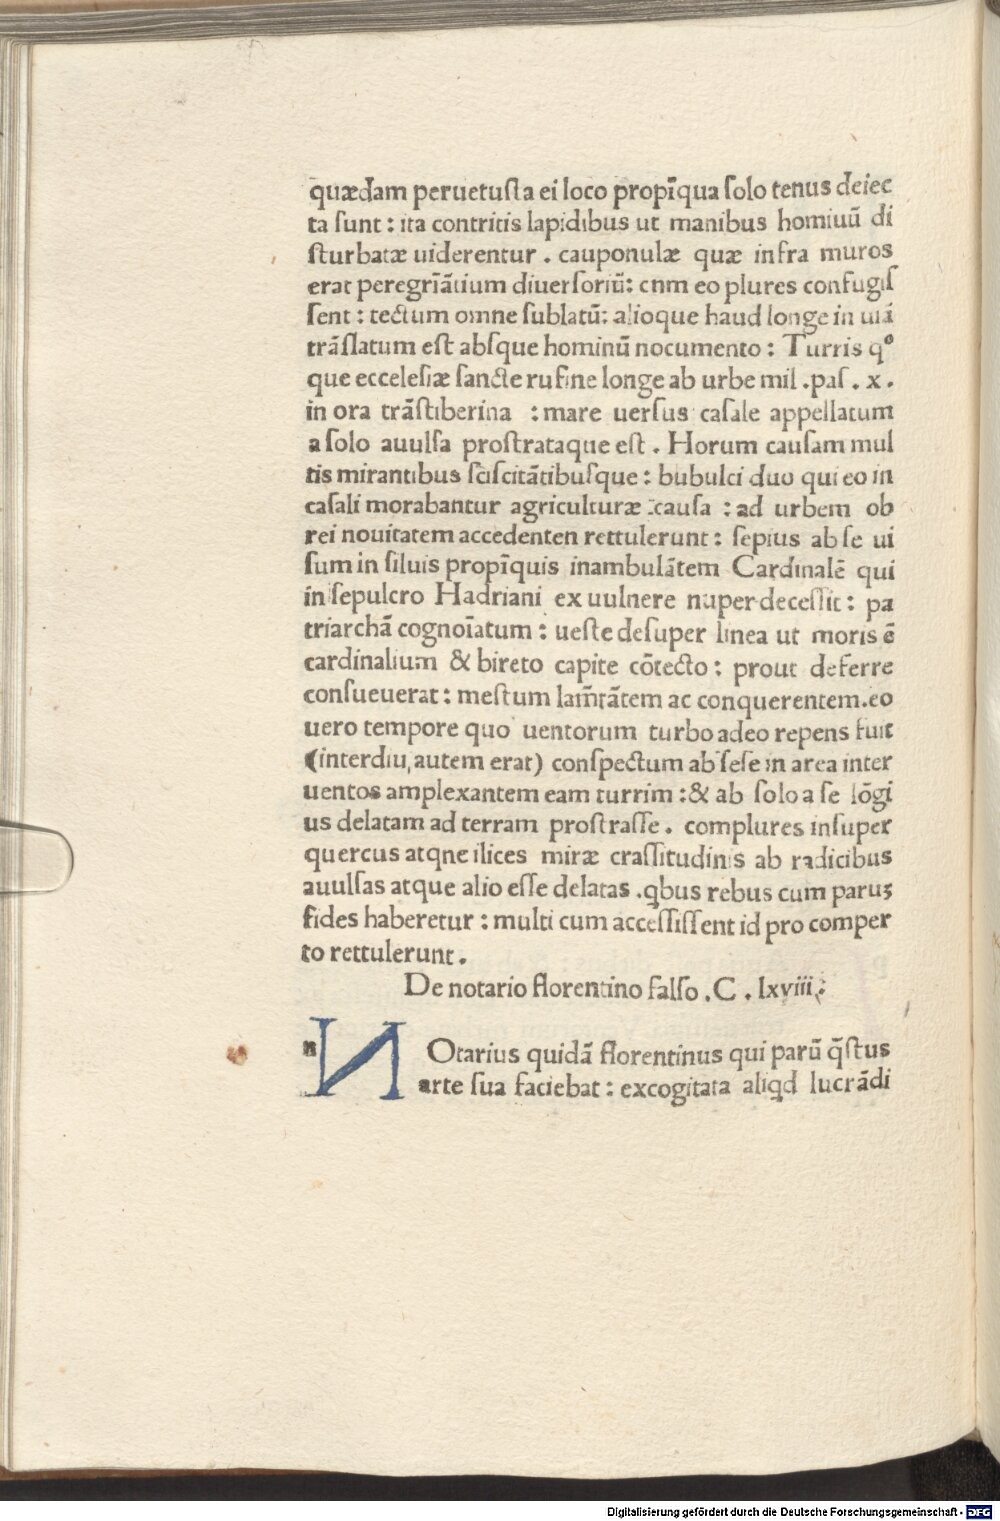 quædam peruetuſta ei loco propīqua ſolo tenus deiec
ta ſunt : ita contritis lapidibus ut manibus homiuū di
ſturbatæ uiderentur . cauponulæ quæ infra muros
erat peregrīātium diuerſoriū: cnm eo plures confugiſ
ſent : tectum omne ſublatū: alioque haud longe in uiā
trāſlatum eſt abſque hominū nocumento : Turris qº
que eccelesiæ ſancte rufine longe ab urbe mil .paſ . x .
in ora trāſtiberina : mare uerſus caſale appellatum
a ſolo auulſa proſtrataque eſt . Horum cauſam mul
tis mirantibus ſciſcitātibuſque : bubulci duo qui eo in
caſali morabantur agriculturæ :cauſa : ad urbem ob
rei nouitatem accedenten rettulerunt : ſepius ab ſe ui
ſum in ſiluis propīquis inambulātem Cardinalē qui
in ſepulcro Hadriani ex uulnere nuper deceſſit : pa
triarchā cognoīatum : ueſte deſuper linea ut moris ē
cardinalium & bireto capite cōtecto : prout deferre
conſueuerat : meſtum lam̄tātem ac conquerentem.eo
uero tempore quo uentorum turbo adeo repens fuit
(interdiu, autem erat) conſpectum ab ſeſe in area inter
uentos amplexantem eam turrim :& ab ſolo a ſe lōgi
us delatam ad terram proſtraſſe . complures inſuper
quercus atqne ilices miræ craſſitudinis ab radicibus
auulſas atque alio eſſe delatas .qbus rebus cum paruꝫ
fides haberetur : multi cum acceſſiſſent id pro comper
to rettulerunt .
De notario florentino falſo . C . lxviii .
n N Otarius quidā florentinus qui parū q̄ſtus
arte ſua faciebat : excogitata aliqd lucrādi
Digitalisierung gefördert durch die Deutsche Forschungsgemeinschaft - DFG